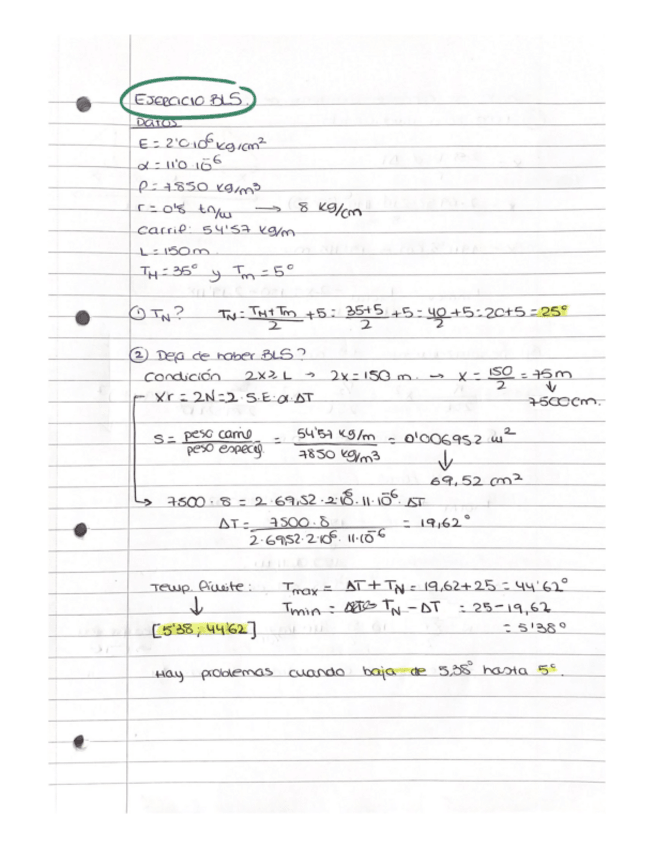 EJERCICIO BLS.
DATOS
E = 2'0 10⁶ kg/cm²
α = 11'0 10⁻⁶
ρ = 7850 kg/m³
r = 0'8 tn/m → 8 kg/cm
carril: 54'57 kg/m
L = 150 m
T_H = 35° y T_m = 5°
① T_N? T_N = (T_H + T_m)/2 + 5 = (35+5)/2 + 5 = 40/2 + 5 = 20 + 5 = 25°
② Deja de haber BLS?
Condición 2x ≥ L → 2x = 150 m → x = 150/2 = 75 m
↓
7500 cm.
Xr = 2N = 2 · S · E · α · ΔT
S = peso carril / peso específ = 54'57 kg/m / 7850 kg/m³ = 0'006952 m²
↓
69,52 cm²
→ 7500 · 8 = 2 · 69,52 · 2·10⁶ · 11·10⁻⁶ · ΔT
ΔT = 7500 · 8 / 2·69,52·2·10⁶·11·10⁻⁶ = 19,62°
Temp. límite: Tmax = ΔT + T_N = 19,62 + 25 = 44'62°
↓ Tmin = T_N - ΔT = 25 - 19,62
[5'38 ; 44'62] = 5'38°
Hay problemas cuando baja de 5,38° hasta 5°.